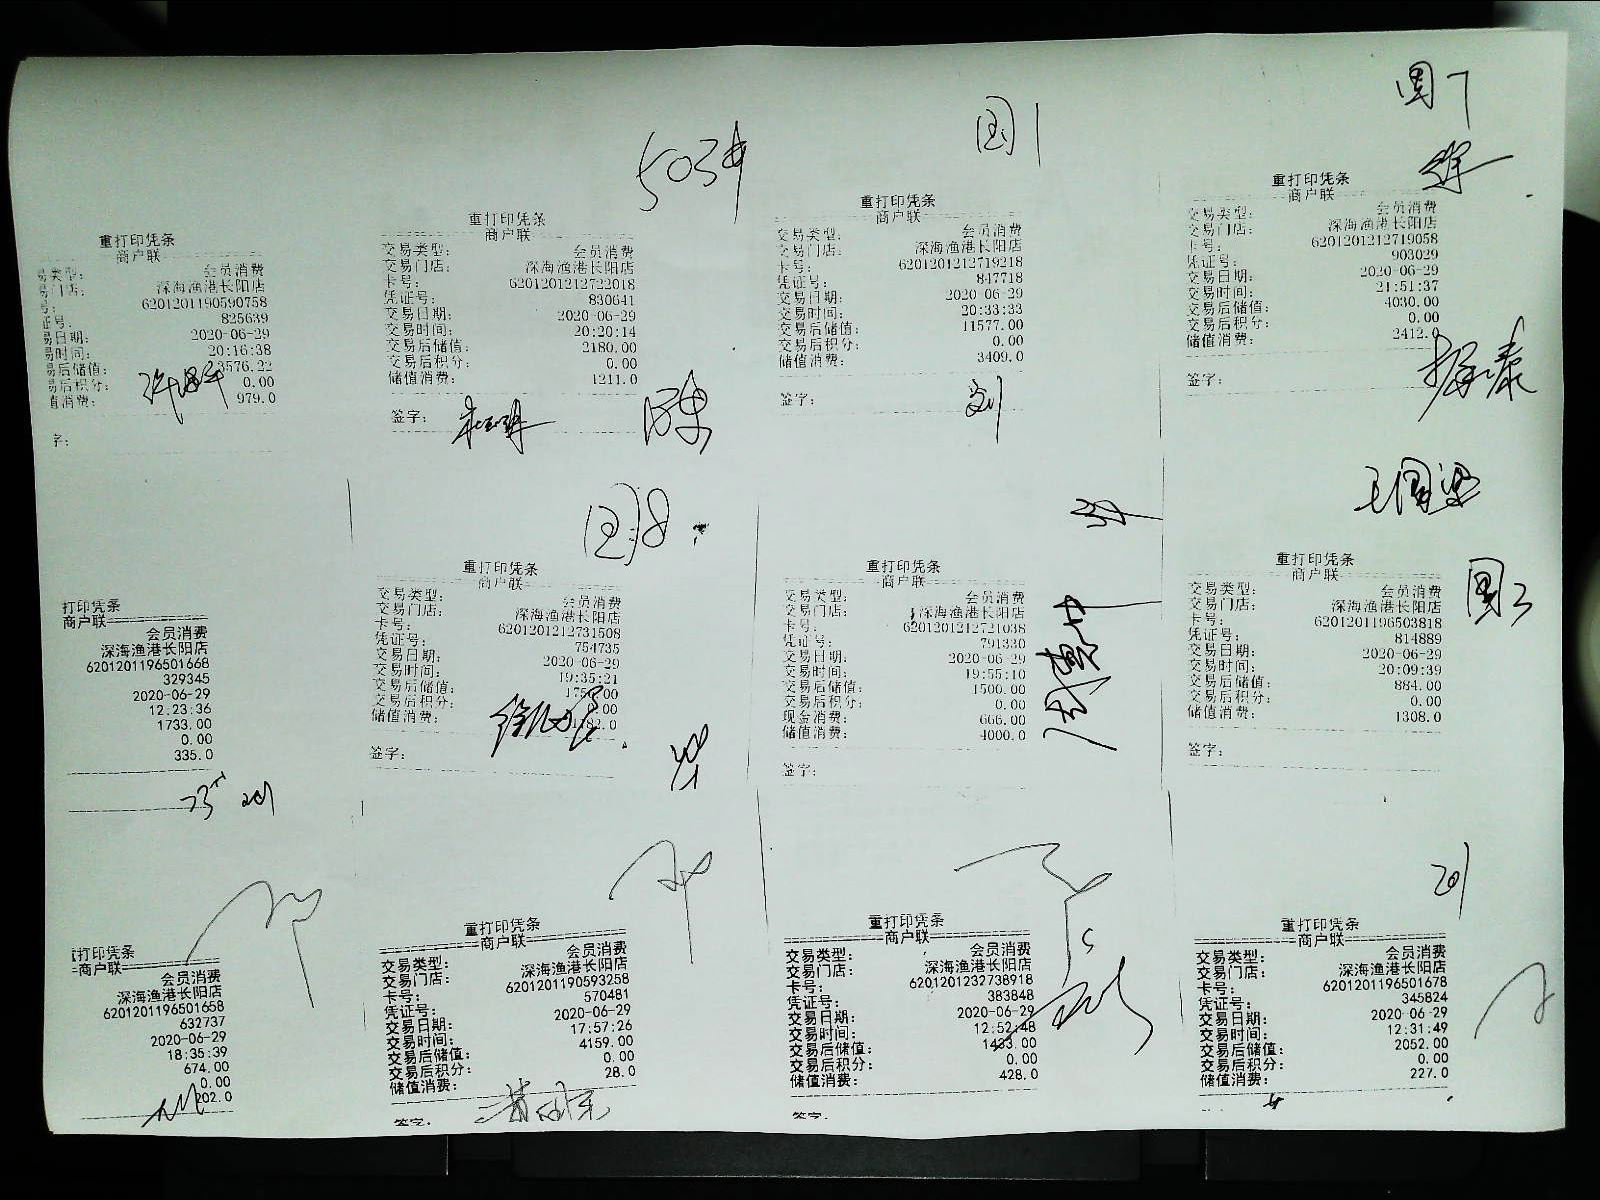 重打印凭条
商户联
易类型: 会员消费
易门店: 深海渔港长阳店
号: 6201201190590758
证号: 825639
易日期: 2020-06-29
易时间: 20:16:38
易后储值: 3576.22
易后积分: 0.00
值消费: 979.0
字:
503#
重打印凭条
商户联
交易类型: 会员消费
交易门店: 深海渔港长阳店
卡号: 6201201212722018
凭证号: 830641
交易日期: 2020-06-29
交易时间: 20:20:14
交易后储值: 2180.00
交易后积分: 0.00
储值消费: 1211.0
签字:
陳
国1
重打印凭条
商户联
交易类型: 会员消费
交易门店: 深海渔港长阳店
卡号: 6201201212719218
凭证号: 847718
交易日期: 2020-06-29
交易时间: 20:33:33
交易后储值: 11577.00
交易后积分: 0.00
储值消费: 3409.0
签字:
刘
国7
重打印凭条
商户联
交易类型: 会员消费
交易门店: 深海渔港长阳店
卡号: 6201201212719058
凭证号: 903029
交易日期: 2020-06-29
交易时间: 21:51:37
交易后储值: 4030.00
交易后积分: 0.00
储值消费: 2412.0
签字:
打印凭条
商户联
会员消费
深海渔港长阳店
6201201196501668
329345
2020-06-29
12:23:36
1733.00
0.00
335.0
国8
重打印凭条
商户联
交易类型: 会员消费
交易门店: 深海渔港长阳店
卡号: 6201201212731508
凭证号: 754735
交易日期: 2020-06-29
交易时间: 19:35:21
交易后储值:
交易后积分:
储值消费:
签字:
重打印凭条
商户联
交易类型: 会员消费
交易门店: 深海渔港长阳店
卡号: 6201201212721038
凭证号: 791330
交易日期: 2020-06-29
交易时间: 19:55:10
交易后储值: 1500.00
交易后积分: 0.00
现金消费: 666.00
储值消费: 4000.0
签字:
王国梁
国3
重打印凭条
商户联
交易类型: 会员消费
交易门店: 深海渔港长阳店
卡号: 6201201196503818
凭证号: 814889
交易日期: 2020-06-29
交易时间: 20:09:39
交易后储值: 884.00
交易后积分: 0.00
储值消费: 1308.0
签字:
重打印凭条
商户联
会员消费
深海渔港长阳店
6201201196501658
632737
2020-06-29
18:35:39
674.00
0.00
202.0
重打印凭条
商户联
交易类型: 会员消费
交易门店: 深海渔港长阳店
卡号: 6201201190593258
凭证号: 570481
交易日期: 2020-06-29
交易时间: 17:57:26
交易后储值: 4159.00
交易后积分: 0.00
储值消费: 28.0
签字:
重打印凭条
商户联
交易类型: 会员消费
交易门店: 深海渔港长阳店
卡号: 6201201232738918
凭证号: 383848
交易日期: 2020-06-29
交易时间: 12:52:48
交易后储值: 1433.00
交易后积分: 0.00
储值消费: 428.0
签字:
重打印凭条
商户联
交易类型: 会员消费
交易门店: 深海渔港长阳店
卡号: 6201201196501678
凭证号: 345824
交易日期: 2020-06-29
交易时间: 12:31:49
交易后储值: 2052.00
交易后积分: 0.00
储值消费: 227.0